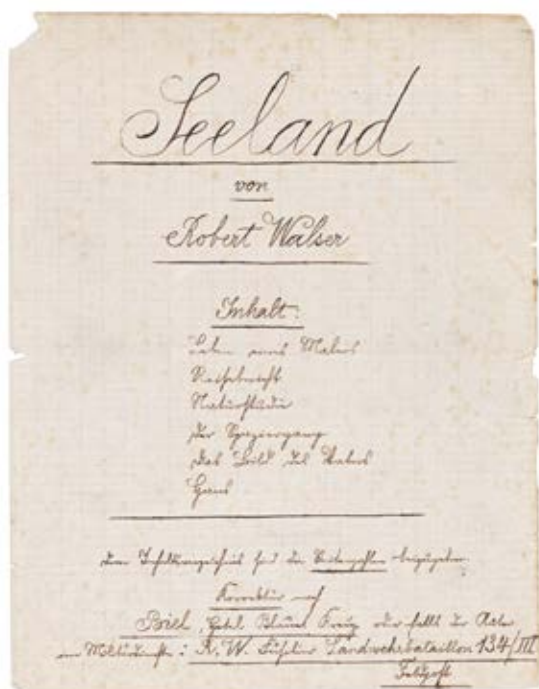 Seeland
von
Robert Walser
Inhalt:
Leben eines Malers
Reisebericht
Naturstudie
Der Spaziergang
Das Bild des Vaters
Hans
Dem Inhaltsverzeichnis sind die Seitenzahlen beizugeben.
Korrektur nach
Biel, Hotel Blaues Kreuz oder falls der Autor
im Militärdienst: R. W. Füsilier Landwehrbataillon 134/III
Feldpost